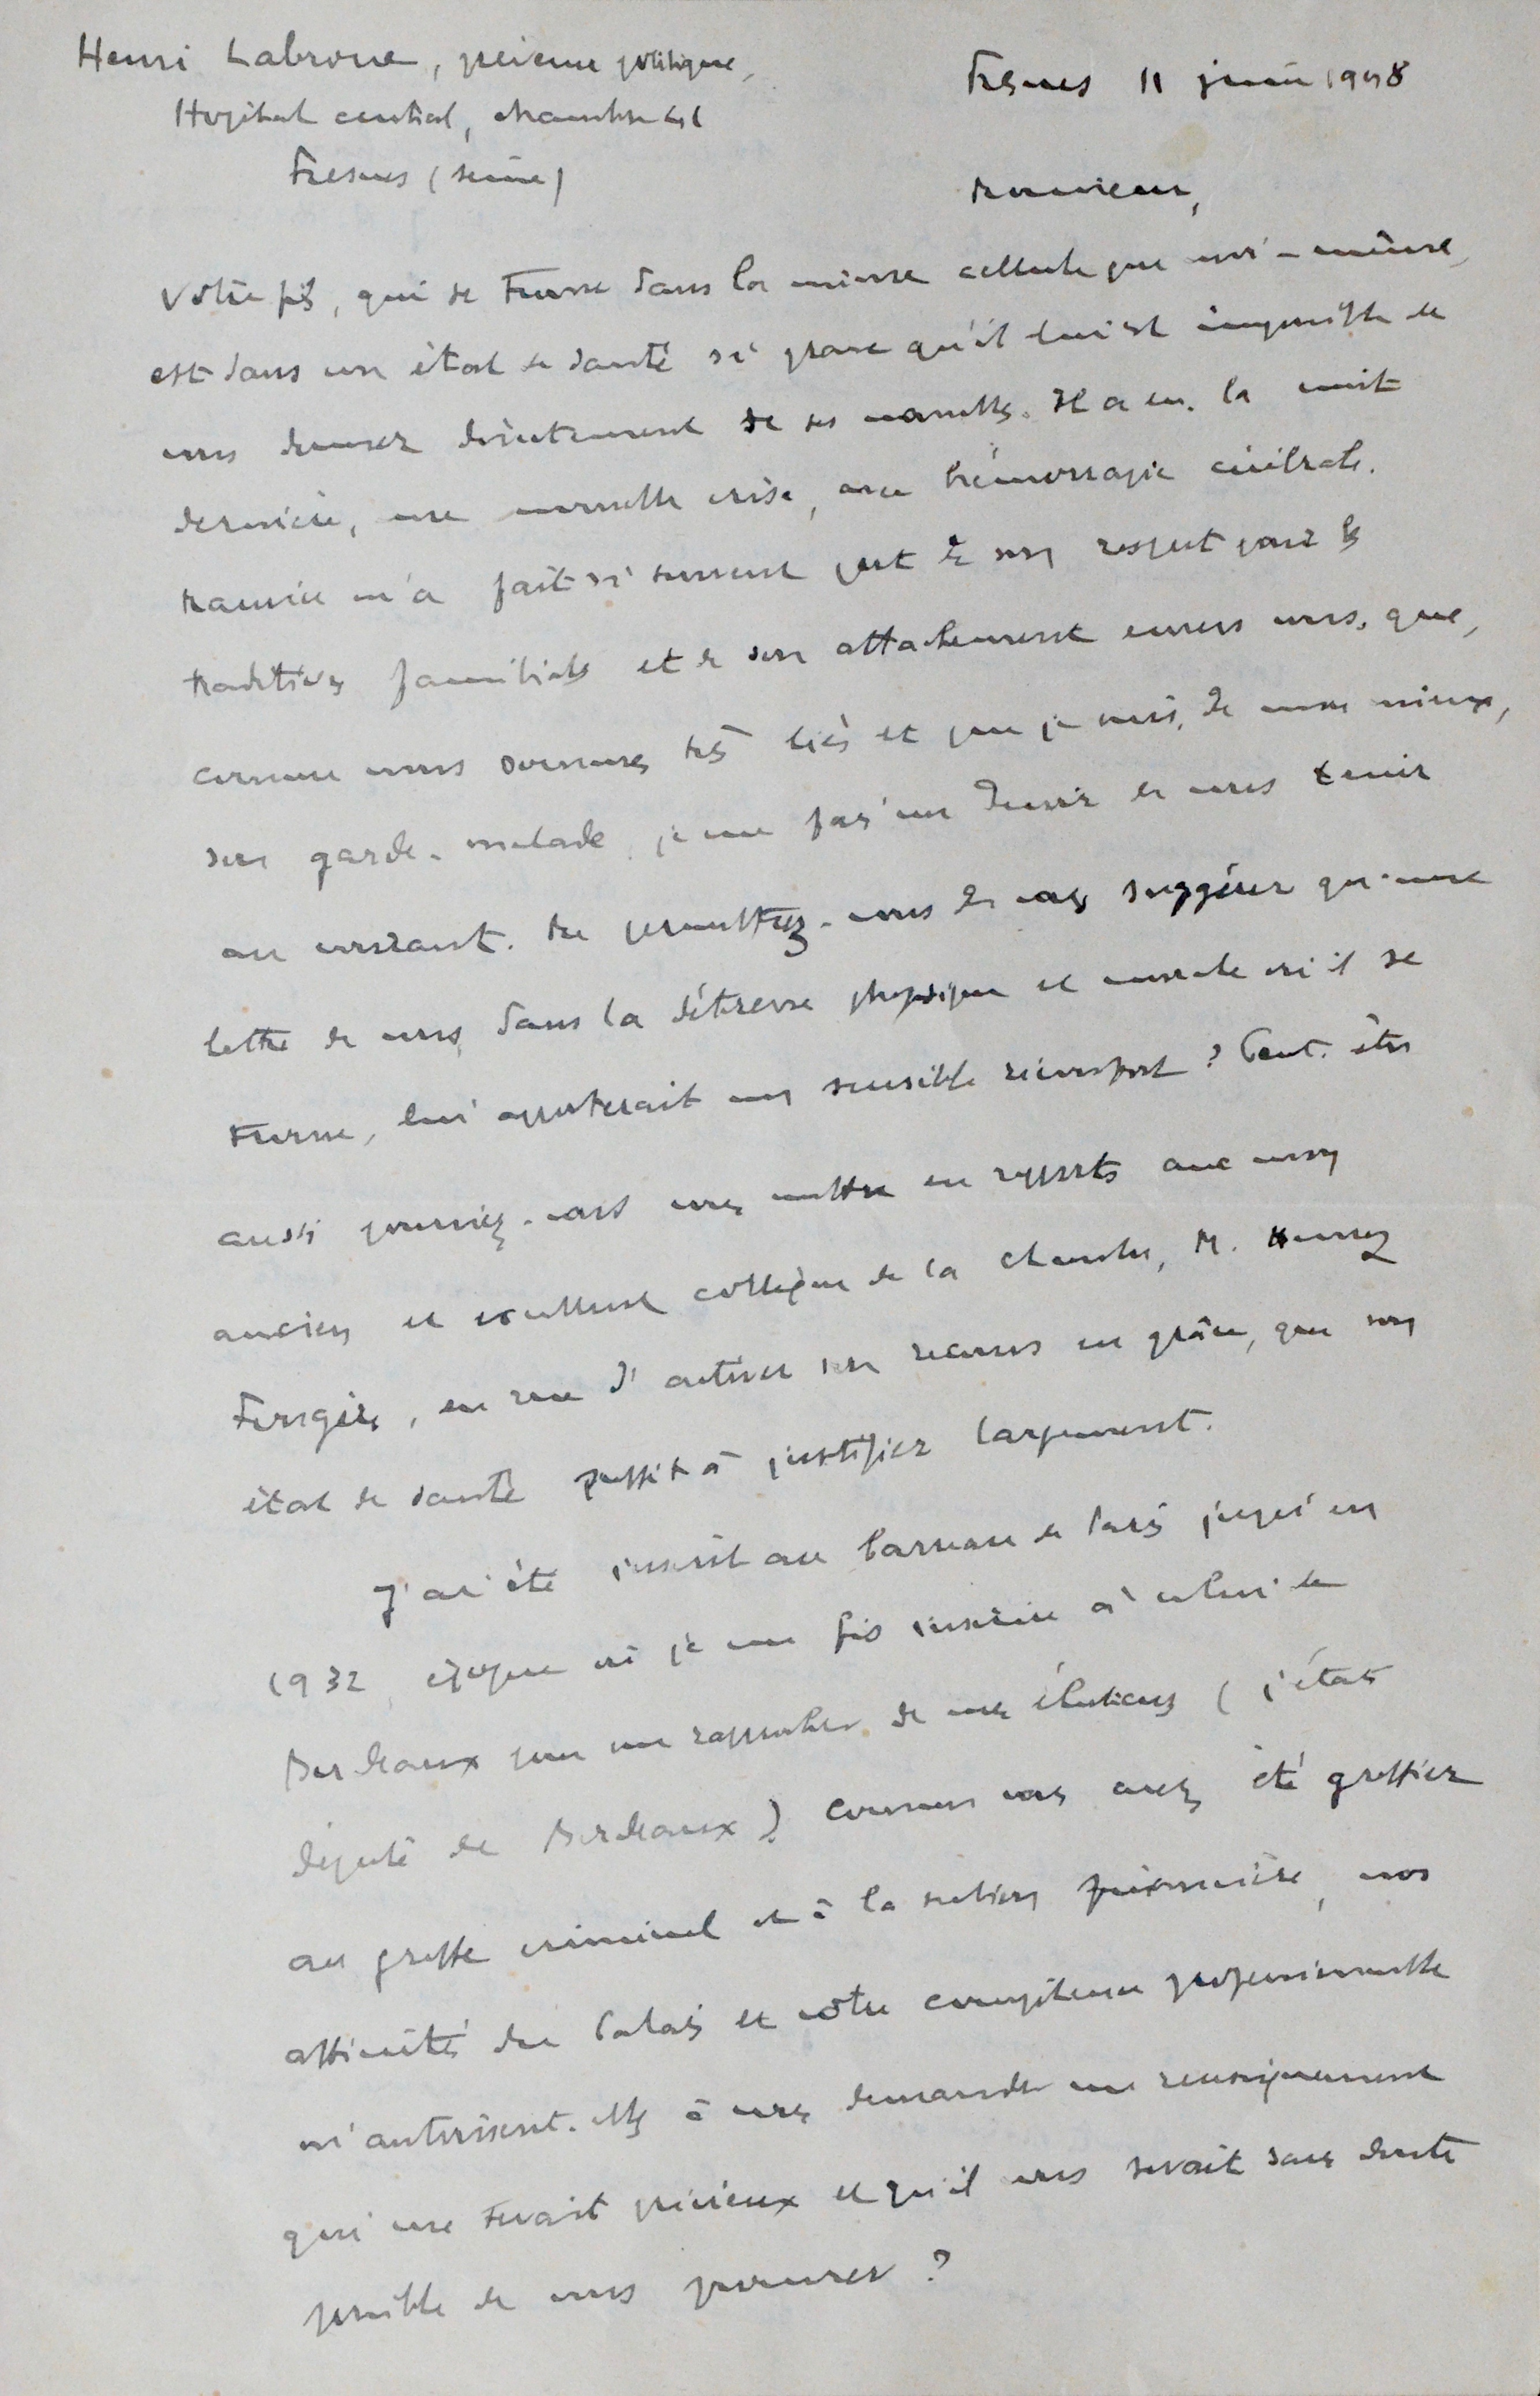 Henri Labroue, prisonnier politique,
Hôpital central, chambre
Fresnes (Seine)
Fresnes 11 juin 1948
Monsieur,
Votre fils, qui se trouve dans la même cellule que moi-même,
est dans un état de santé si grave qu'il lui est impossible de
vous donner directement de ses nouvelles. Il a eu, la nuit
dernière, une nouvelle crise, avec hémorragie cérébrale.
Maurice m'a fait si souvent part de son respect pour les
traditions familiales et de son attachement envers vous, que,
comme nous sommes très liés et que je suis, de mon mieux,
son garde-malade, je me fais un devoir de vous tenir
au courant. Me permettez-vous de vous suggérer qu'une
lettre de vous, dans la détresse physique et morale où il se
trouve, lui apporterait un sensible réconfort ? Peut-être
aussi pourriez-vous vous mettre en rapports avec mon
ancien et excellent collègue de la Chambre, M.
, en vue d'activer son recours en grâce, que son
état de santé suffit à justifier largement.
J'ai été inscrit au barreau de Paris jusqu'en
1932, époque où je me fis inscrire à celui de
Bordeaux pour me rapprocher de mes électeurs (j'étais
député de Bordeaux). Comme vous avez été greffier
au greffe criminel et à la section financière, nos
affinités du Palais et votre compétence professionnelle
m'autorisent-elles à vous demander un renseignement
qui me serait précieux et qu'il vous serait sans doute
possible de vous procurer ?